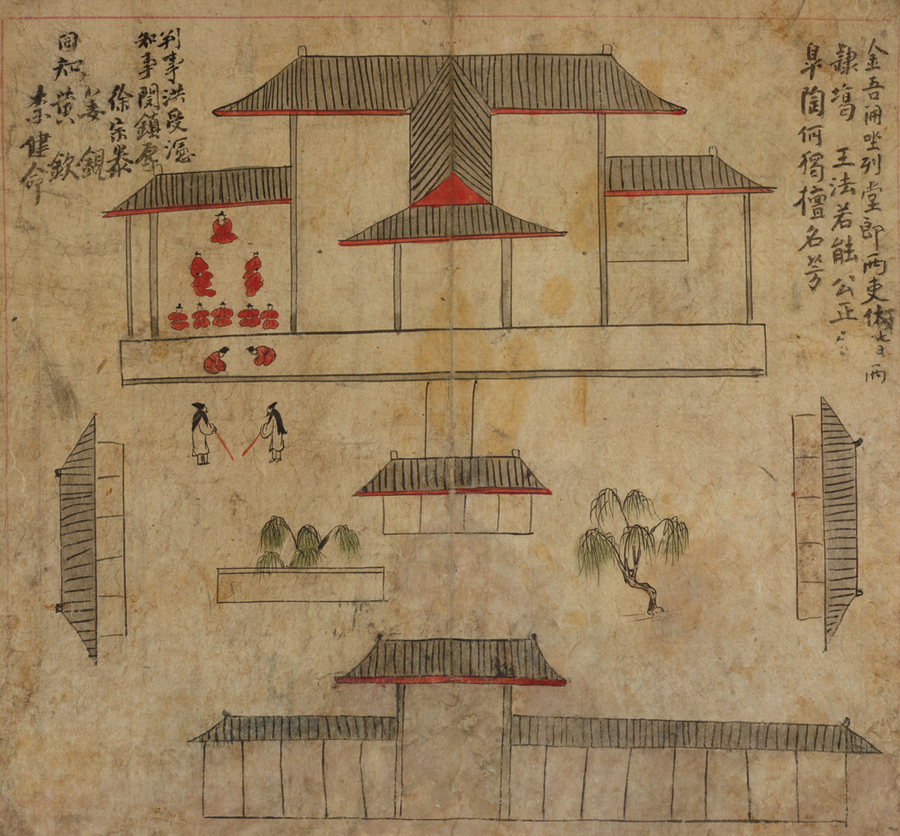 金吾開坐列堂郎兩吏 又兩
隷塲 王法若能公正
皐陶何獨擅名芳
判事洪受瀗
知事閔鎮厚
徐宗泰
姜鋧
同知 黃欽
李健命